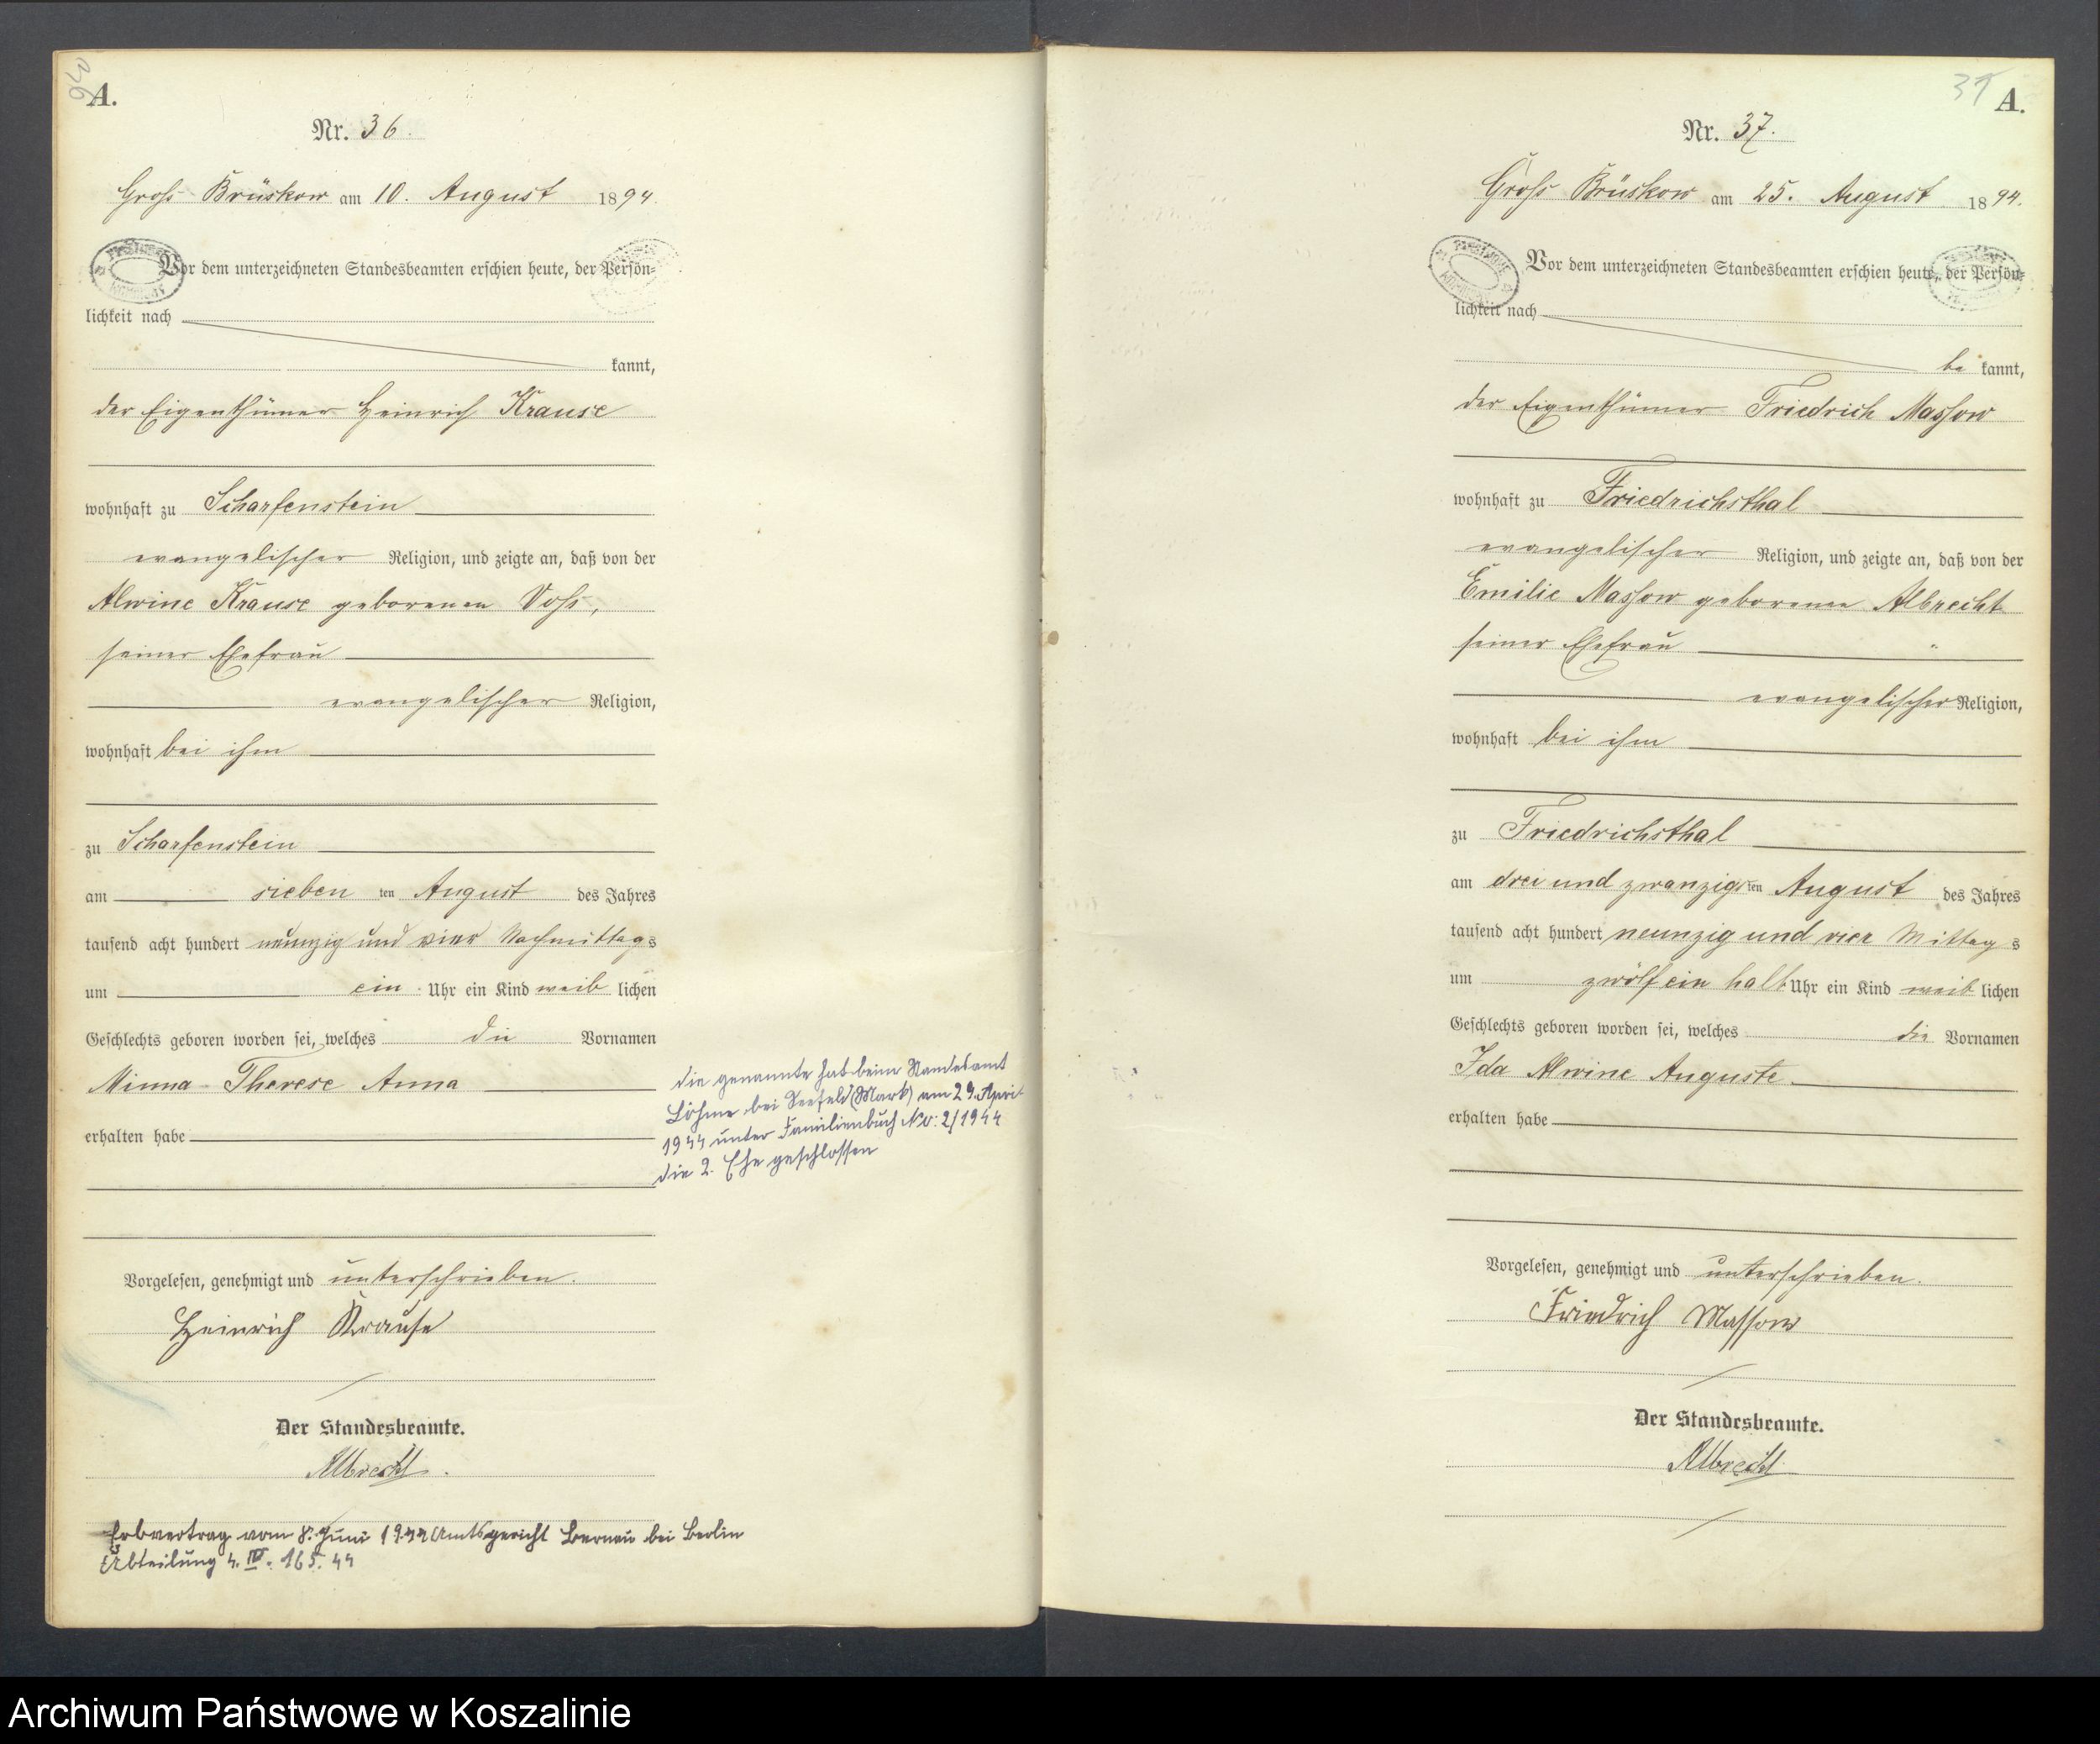 36
A.
Nr. 36.
Groß Brüskow am 10. August 1894.
Vor dem unterzeichneten Standesbeamten erschien heute, der Persön=
lichkeit nach
kannt,
der Eigenthümer Heinrich Krause
wohnhaft zu Scharfenstein
evangelischer Religion, und zeigte an, daß von der
Alwine Krause geborenen Voß,
seiner Ehefrau
evangelischer Religion,
wohnhaft bei ihm
zu Scharfenstein
am sieben ten August des Jahres
tausend acht hundert neunzig und vier Nachmittags
um ein Uhr ein Kind weib lichen
Geschlechts geboren worden sei, welches die Vornamen
Minna Therese Anna
erhalten habe
die genannte hat beim Standesamt
Löhme bei Seefeld (Mark) am 29. April
1944 unter Familienbuch No: 2/1944
die 2. Ehe geschlossen
Vorgelesen, genehmigt und unterschrieben.
Heinrich Krause
Der Standesbeamte.
Albrecht.
Erbvertrag vom 8. Juni 1944 Amtsgericht Bernau bei Berlin
Abteilung 4. IV. 165. 44
37
A.
Nr. 37.
Groß Brüskow am 25. August 1894.
Vor dem unterzeichneten Standesbeamten erschien heute, der Persön=
lichkeit nach
be kannt,
der Eigenthümer Friedrich Massow
wohnhaft zu Friedrichsthal
evangelischer Religion, und zeigte an, daß von der
Emilie Massow geborenen Albrecht
seiner Ehefrau
evangelischer Religion,
wohnhaft bei ihm
zu Friedrichsthal
am drei und zwanzigsten August des Jahres
tausend acht hundert neunzig und vier Mittag s
um zwölf ein halb Uhr ein Kind weib lichen
Geschlechts geboren worden sei, welches die Vornamen
Ida Alwine Auguste
erhalten habe
Vorgelesen, genehmigt und unterschrieben.
Friedrich Massow
Der Standesbeamte.
Albrecht
Archiwum Państwowe w Koszalinie